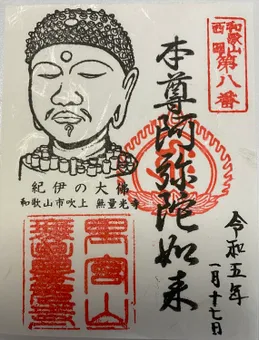 和歌山
西国
第八番
本尊阿弥陀如来
紀伊の大佛
和歌山市吹上 無量光寺
令和五年
一月十七日